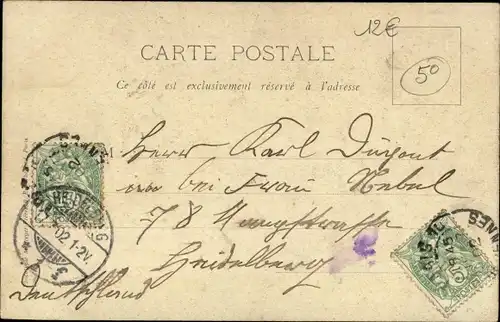 12€
50
CARTE POSTALE
Ce côté est exclusivement réservé à l'adresse
Herr Karl Dupont
bei Frau Nebel
78 Hauptstrasse
Heidelberg
Deutschland
HEIDELBERG
02.1-2V.